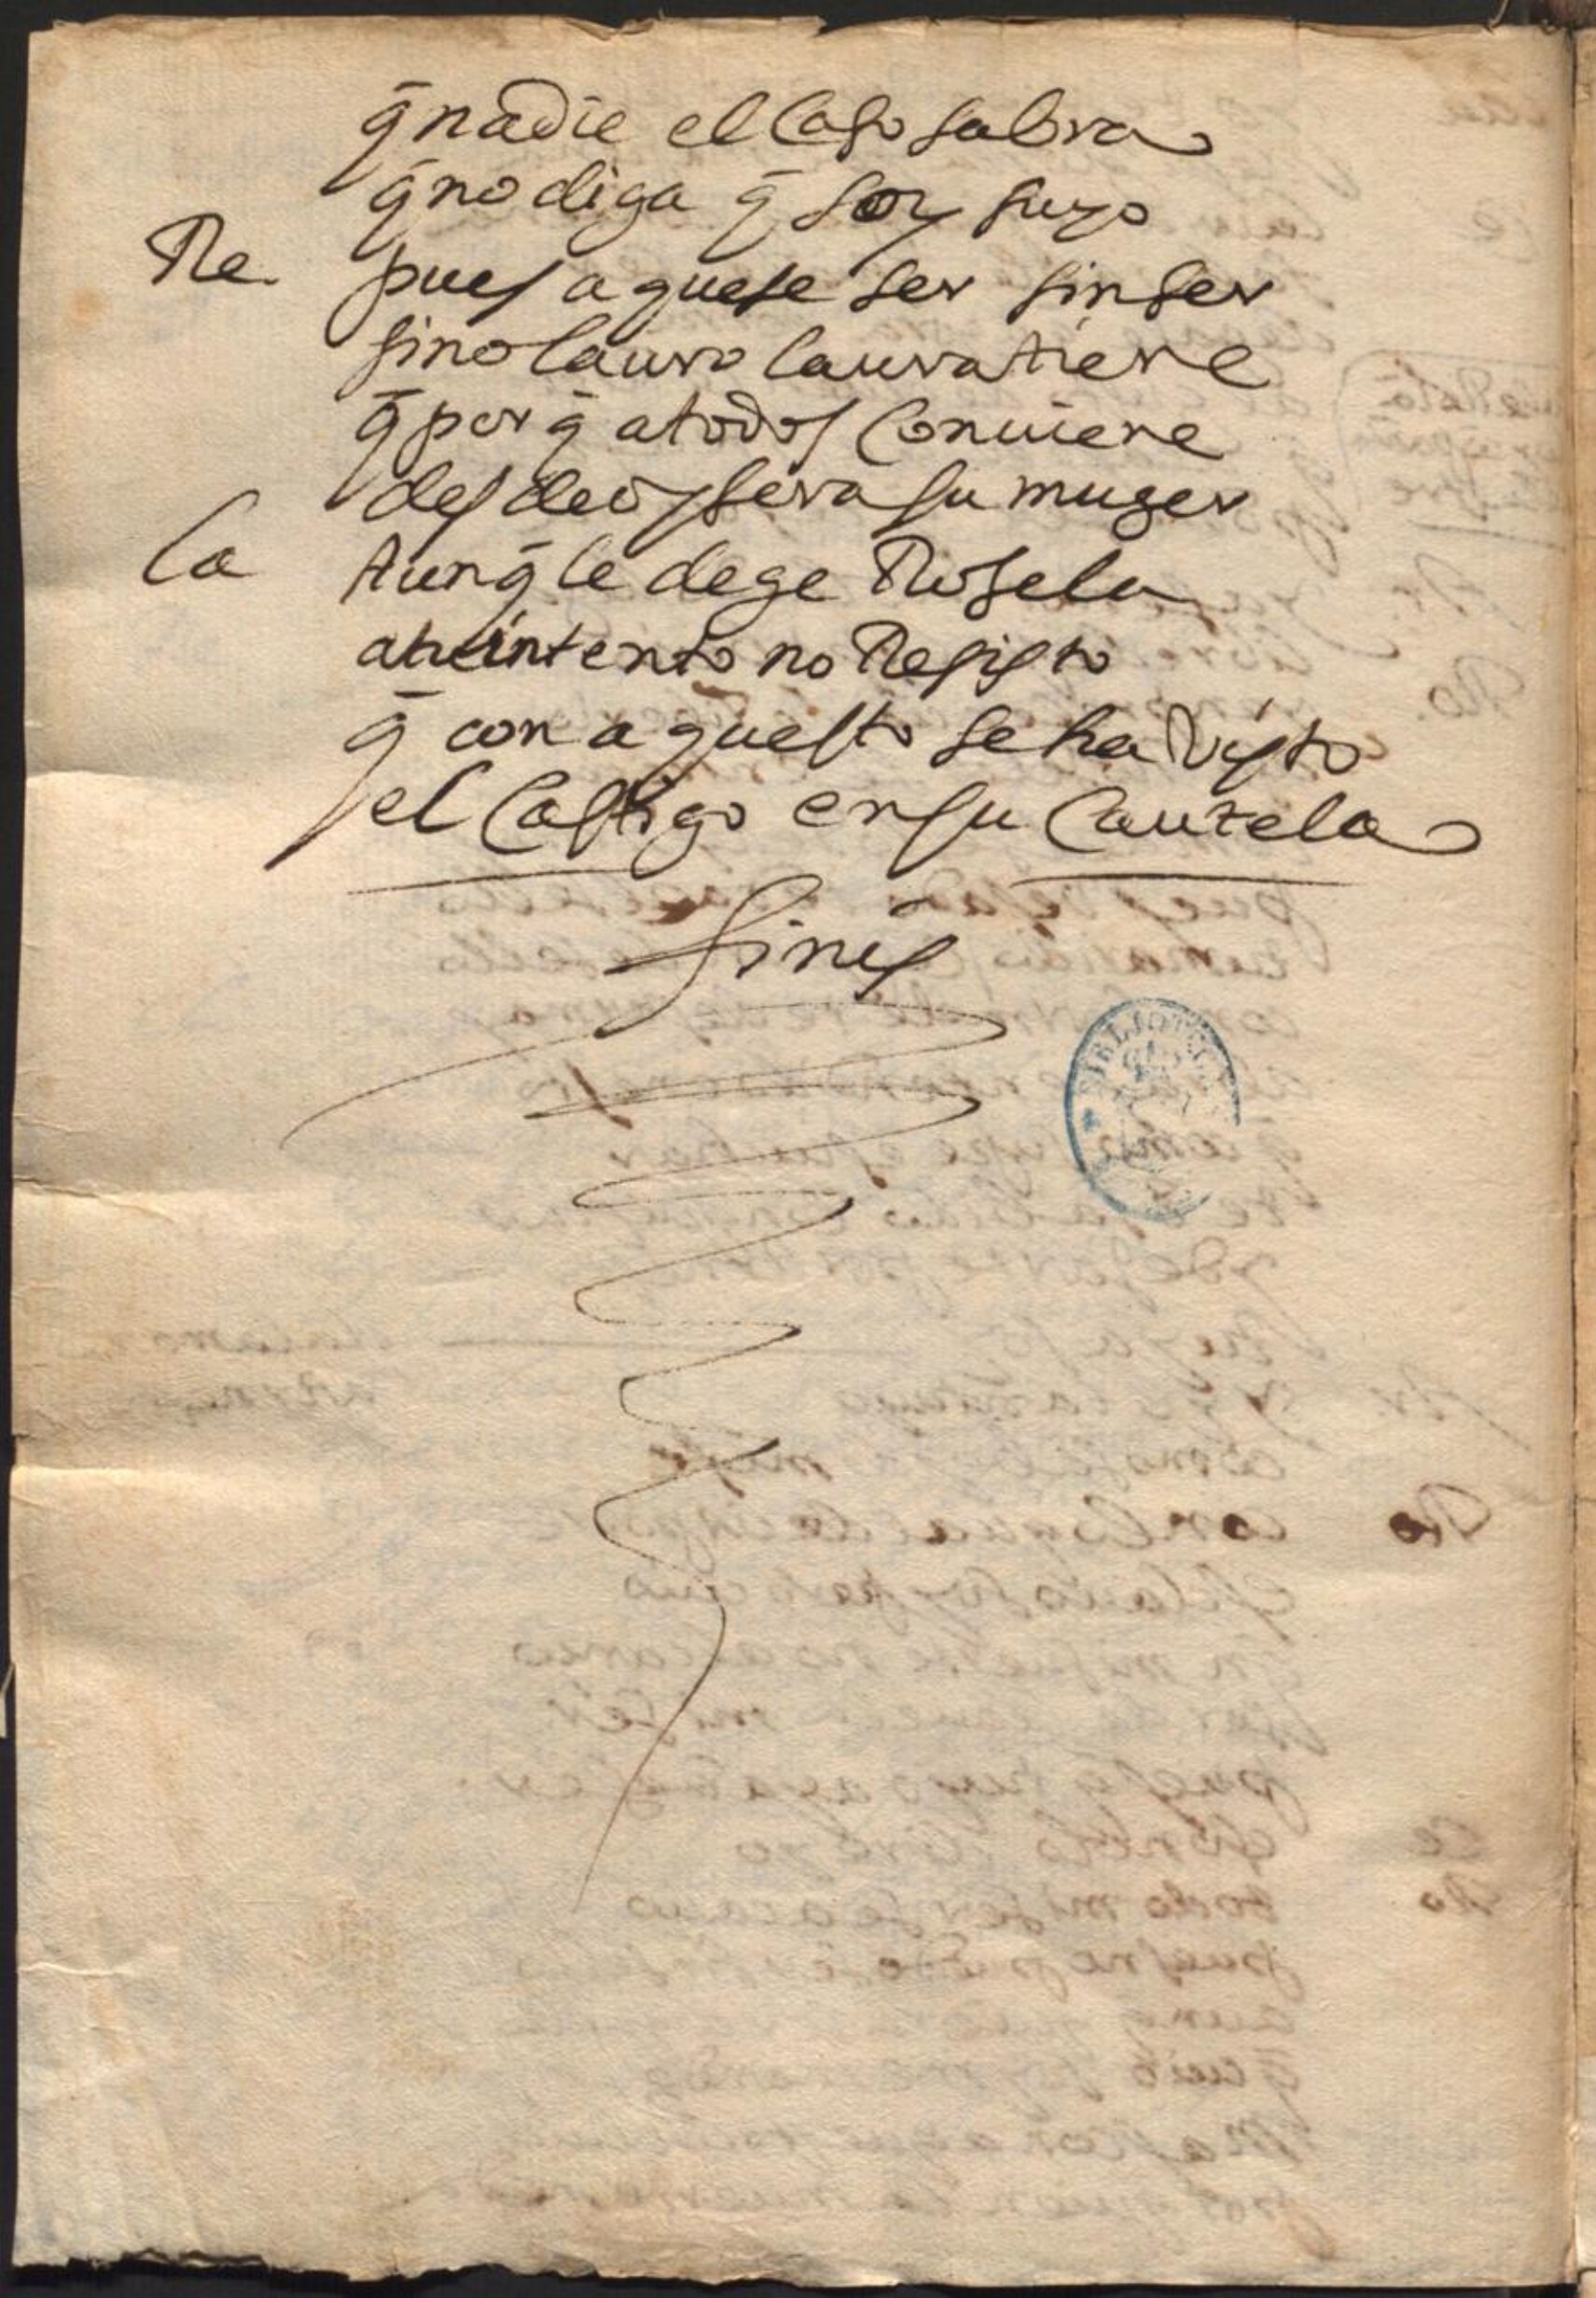 q̄ nadie el caso sabra
q̄ no diga q̄ soy suyo
Re. pues aquese ser sin ser
sino lauro laura tiene
q̄ por q̄ a todos conuiene
desde oy sera su muger
La Aunq̄ le dege Rosela
a tu intento no Resisto
q̄ con aquesto se ha visto
el castigo en su cautela
finis
BIBLIOTECA